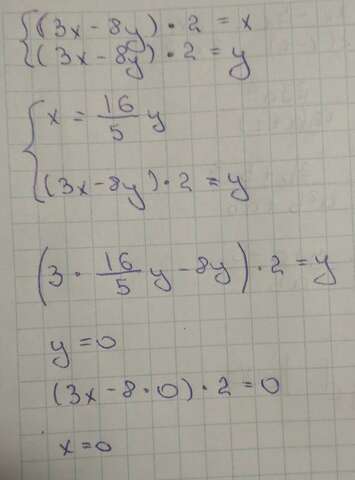 {(3x-8y)·2=x
{(3x-8y)·2=y
{x=16/5 y
{(3x-8y)·2=y
(3·16/5 y-8y)·2=y
y=0
(3x-8·0)·2=0
x=0